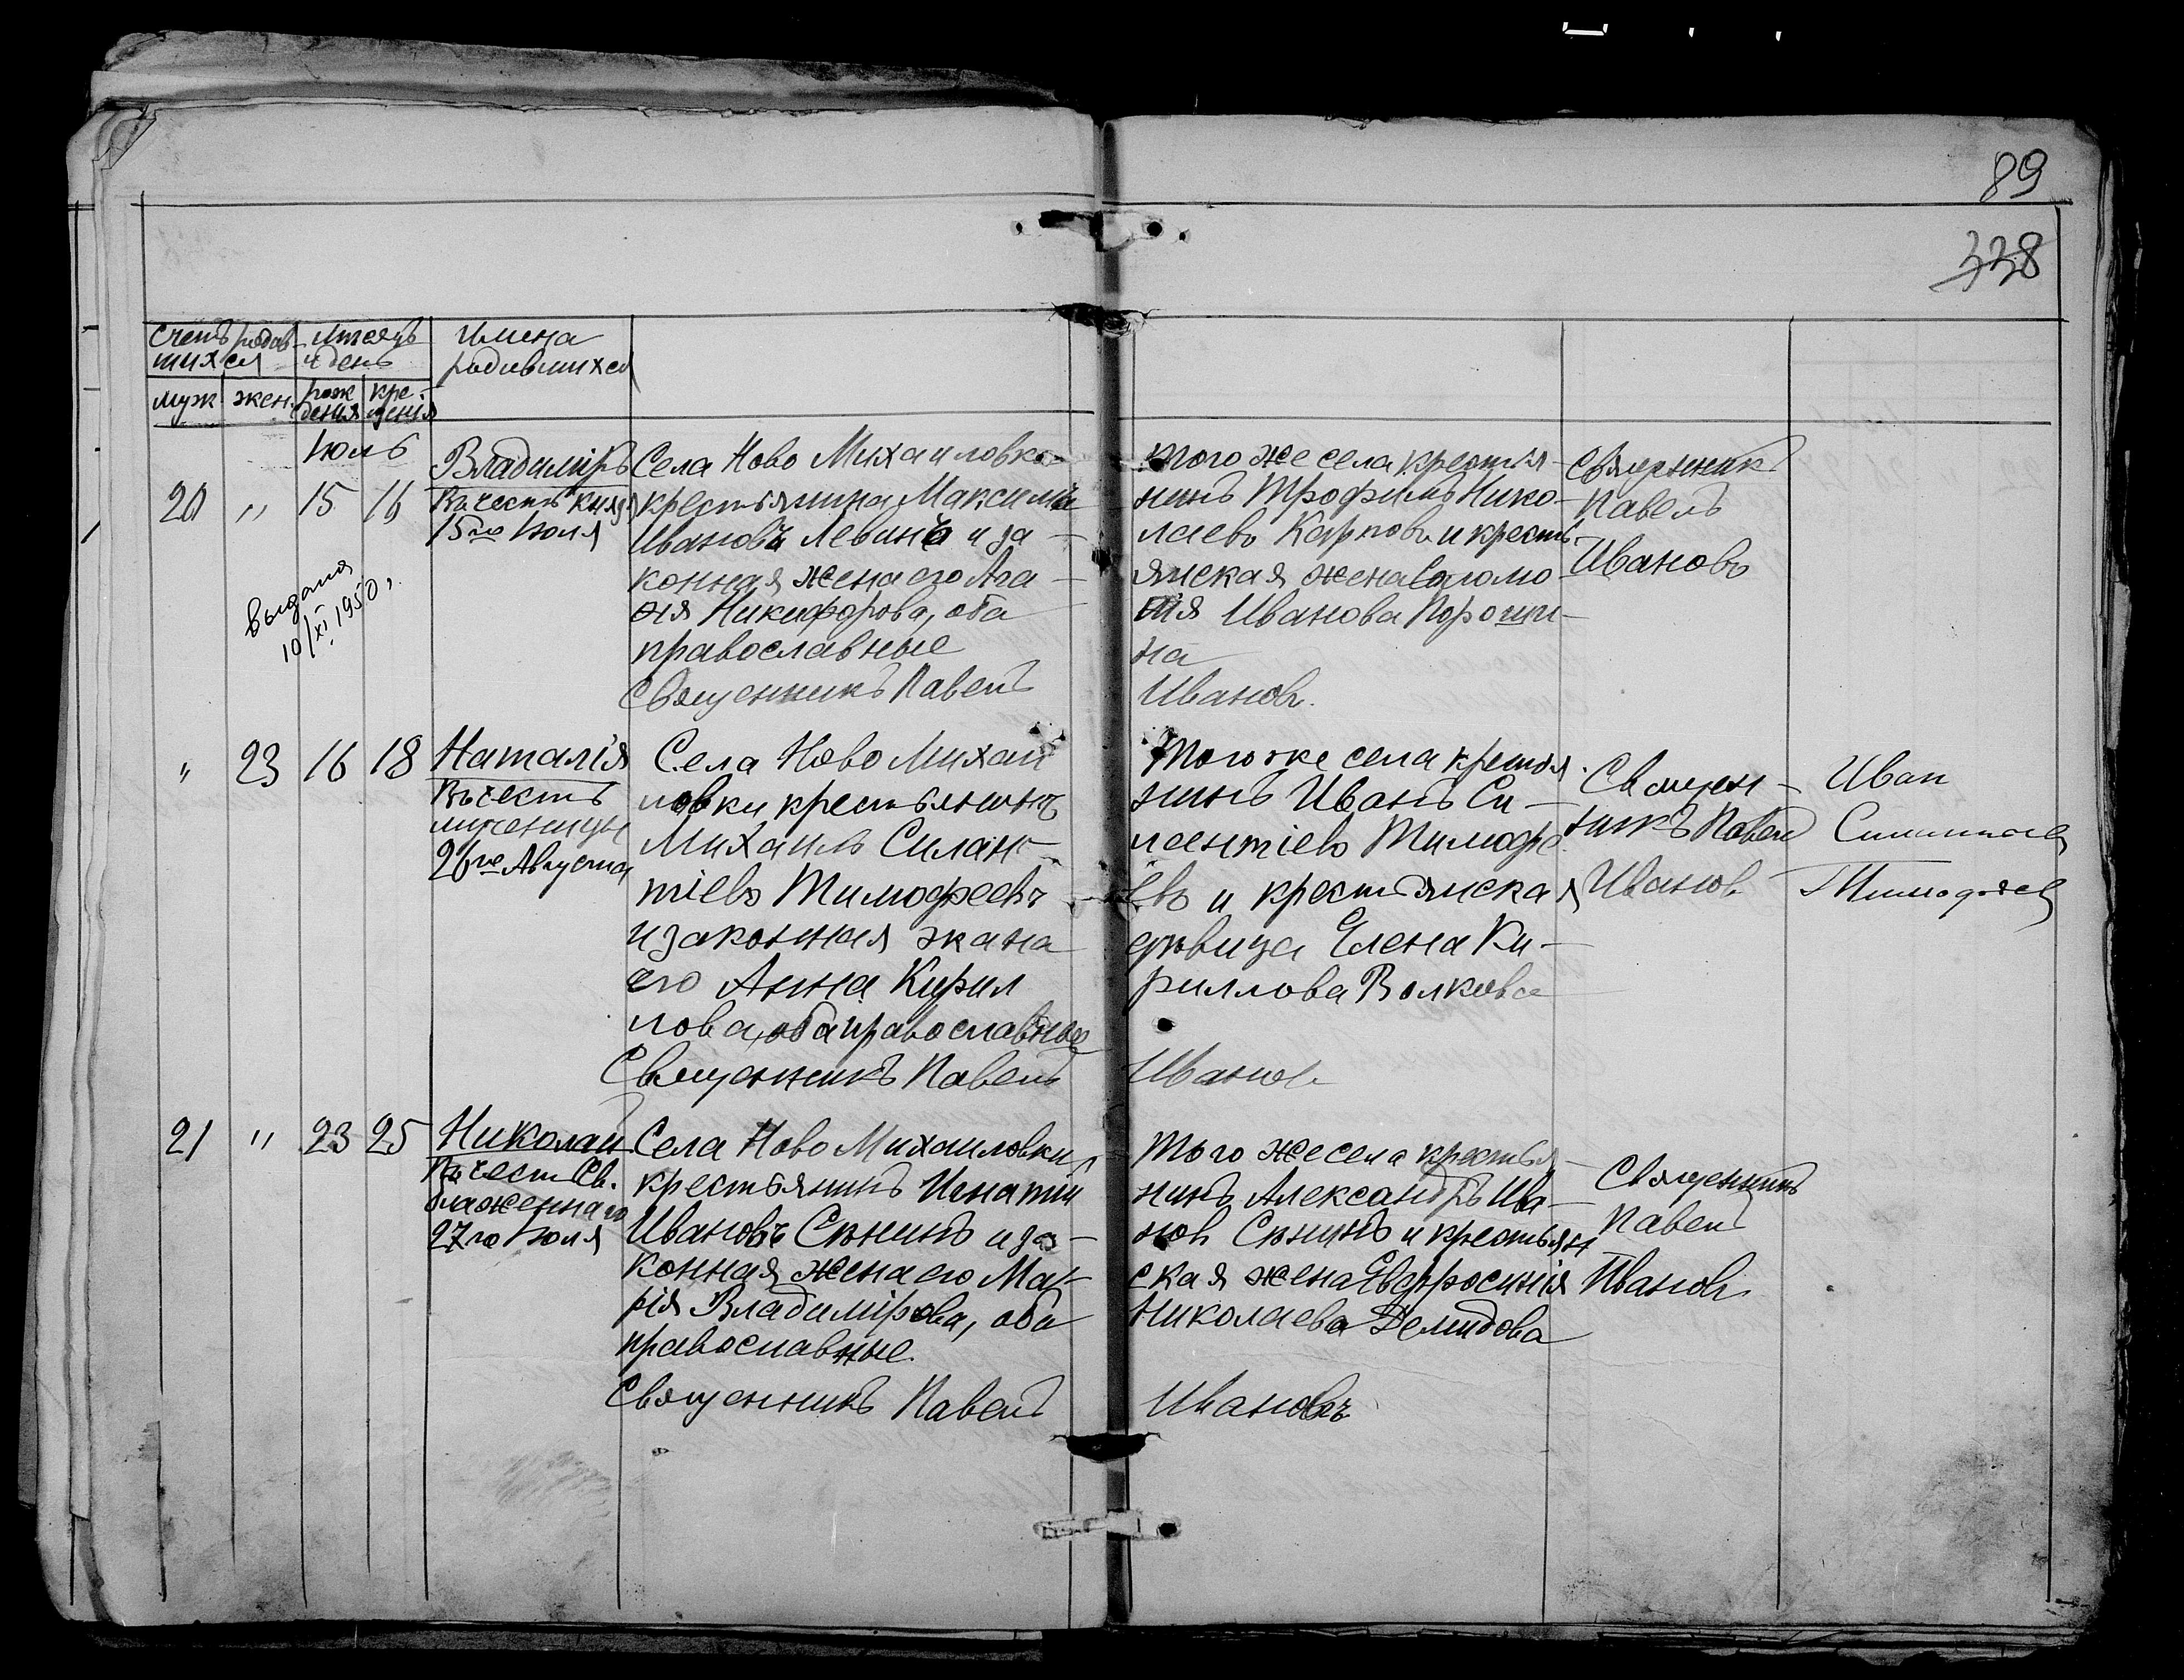 89
338
Счетъ родив-
шихся
Мѣсяцъ
и день
Имена
родившихся
муж
жен.
рож
дения
кре-
щенія
Июль
20 " 15 16
Владиміръ
Въ честь князя
15го Июля
Села Ново Михаиловко-
крестьянина Максимъ
Ивановъ Левинъ и за-
конная жена его Ага-
ѳія Никифорова, оба
православные
Священникъ Павелъ
того же села крестья-
нинъ Трофимъ Нико-
лаевъ Карповъ и кресть-
янская жена Соломо-
нія Иванова Пороши-
на
Иванов.
Священникъ
Павелъ
Ивановъ
выдана
10/XI 1950 г.
" 23 16 18
Наталія
Въ честь
мученицы
26го Августа
Села Ново Михаи
ловки крестьянинъ
Михаилъ Силан-
тіевъ Тимофеевъ
и законная жана
его Анна Кирил
лова, оба православные
Священникъ Павелъ
Того же села крестья
нинъ Иванъ Си-
леентіевъ Тимофе
евъ и крестьянская
дѣвица Елена Ки-
риллова Волкова
Иванов
Священ-
никъ Павел
Иванов
Иван
Тимофеев
21 " 23 25
Николаи
Въ честь Св.
блаженнаго
27го Июля
Села Ново Михаиловки
крестьянинъ Игнатии
Ивановъ Сѣнинъ и за-
конная жена его Ма-
рія Владимірова, оба
православные.
Священникъ Павелъ
Того же села крестья-
нинъ Александръ Ива-
нов Сѣнинъ и крестьян
ская жена Евфросинія
Николаева Демидова
Ивановъ
Священникъ
Павелъ
Ивановъ